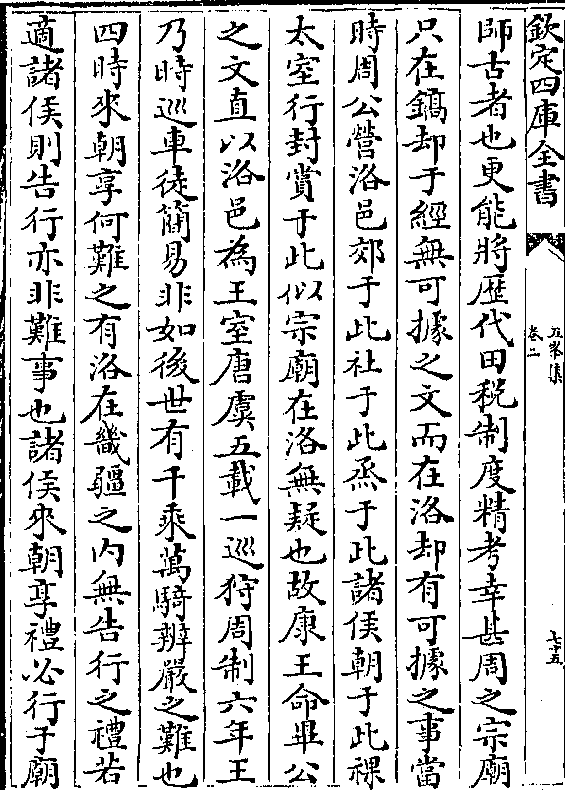 欽定四庫全書
五峯集
卷二
七十五
師古者也更能將歴代田税制度精考幸甚周之宗廟
只在鎬却于經無可據之文而在洛却有可據之事當
時周公營洛邑郊于此社于此烝于此諸侯朝于此祼
太室行封賞于此似宗廟在洛無疑也故康王命畢公
之文直以洛邑為王室唐虞五載一巡狩周制六年王
乃時巡車徒簡易非如後世有千乘萬騎辦嚴之難也
四時來朝享何難之有洛在畿疆之内無告行之禮若
適諸侯則告行亦非難事也諸侯來朝享禮必行于廟